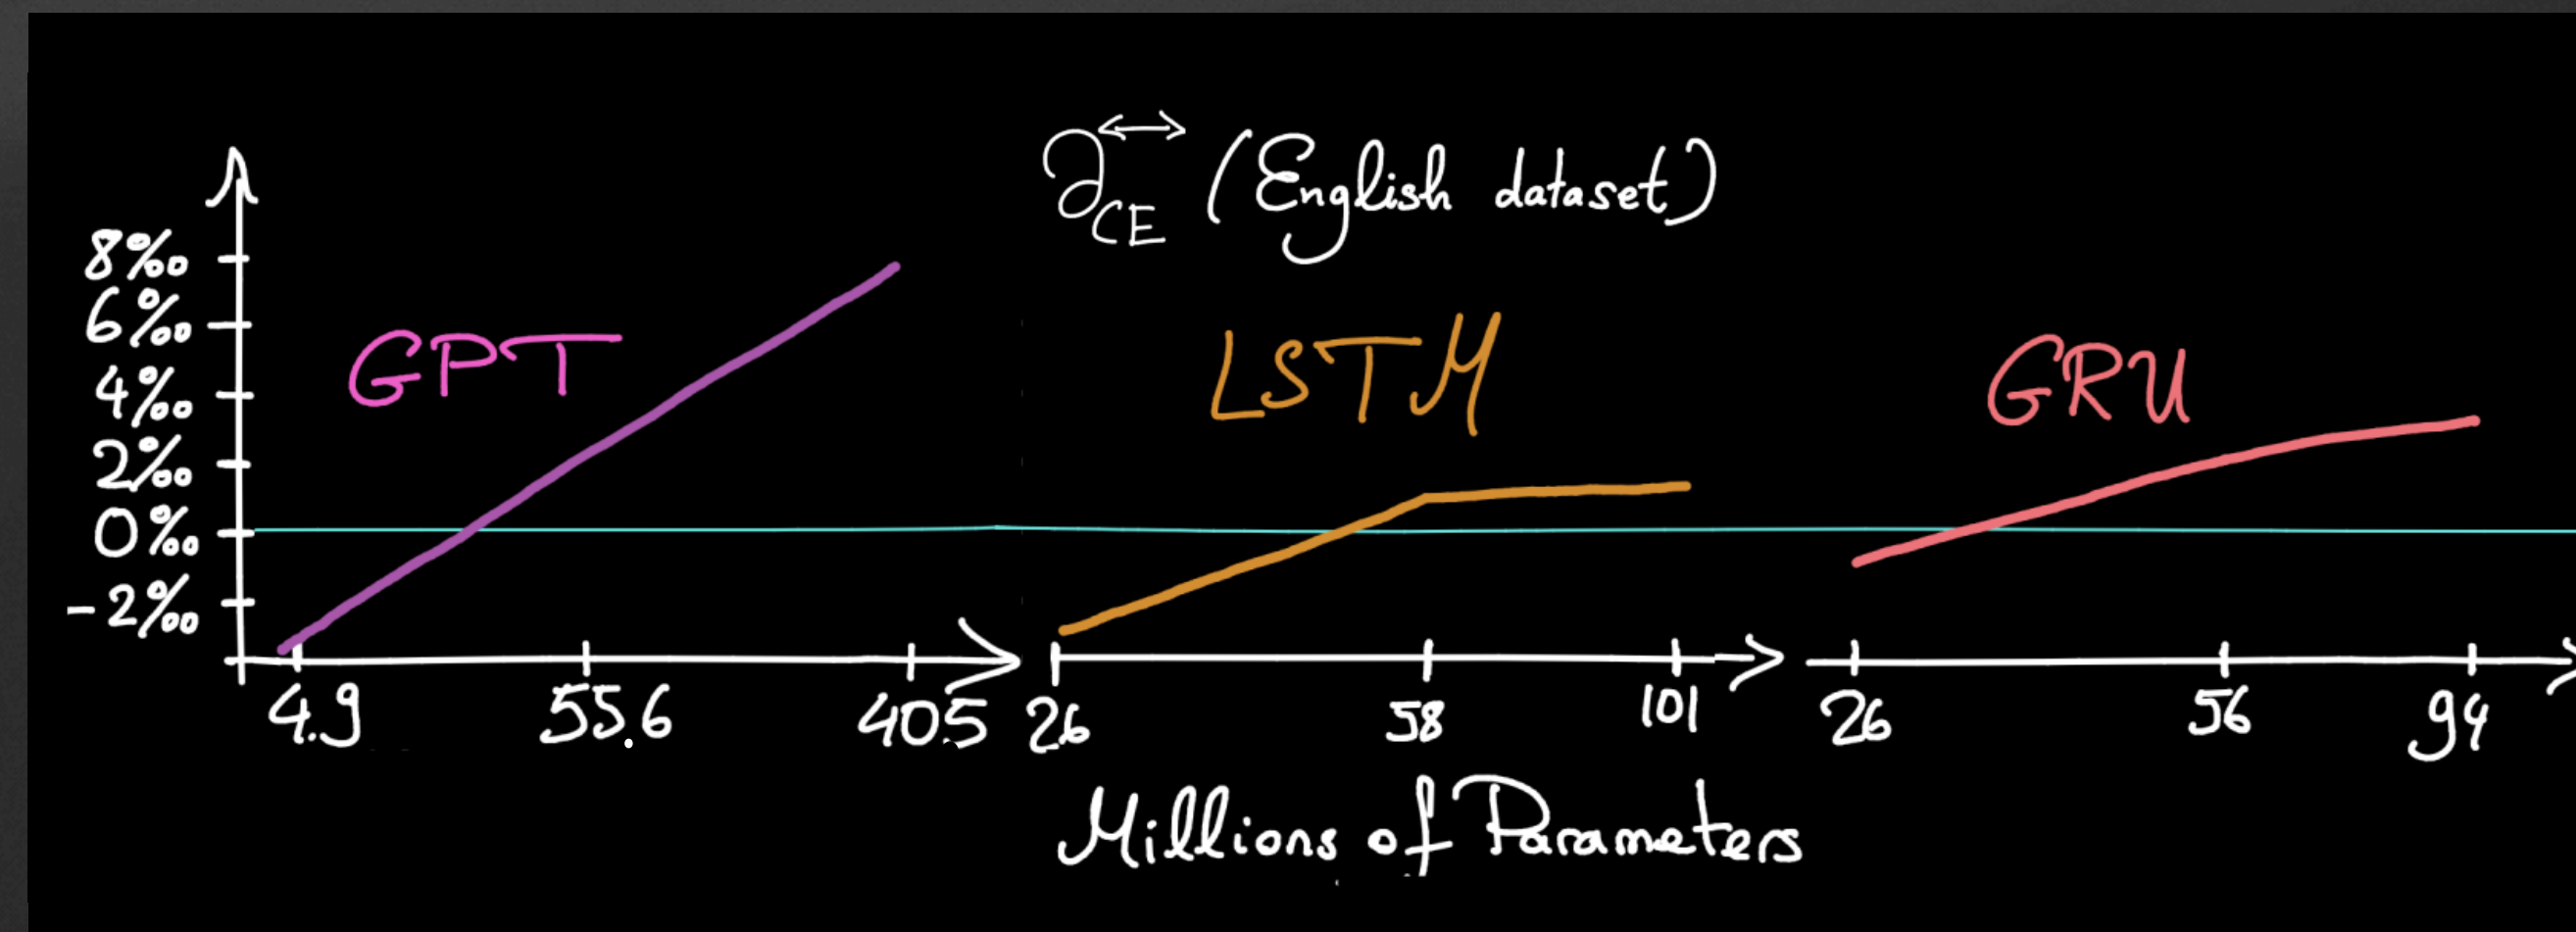 ∂↔CE (English dataset)
8‰
6‰
4‰
2‰
0‰
-2‰
GPT
LSTM
GRU
4.9 55.6 405 26 58 101 26 56 94
Millions of Parameters